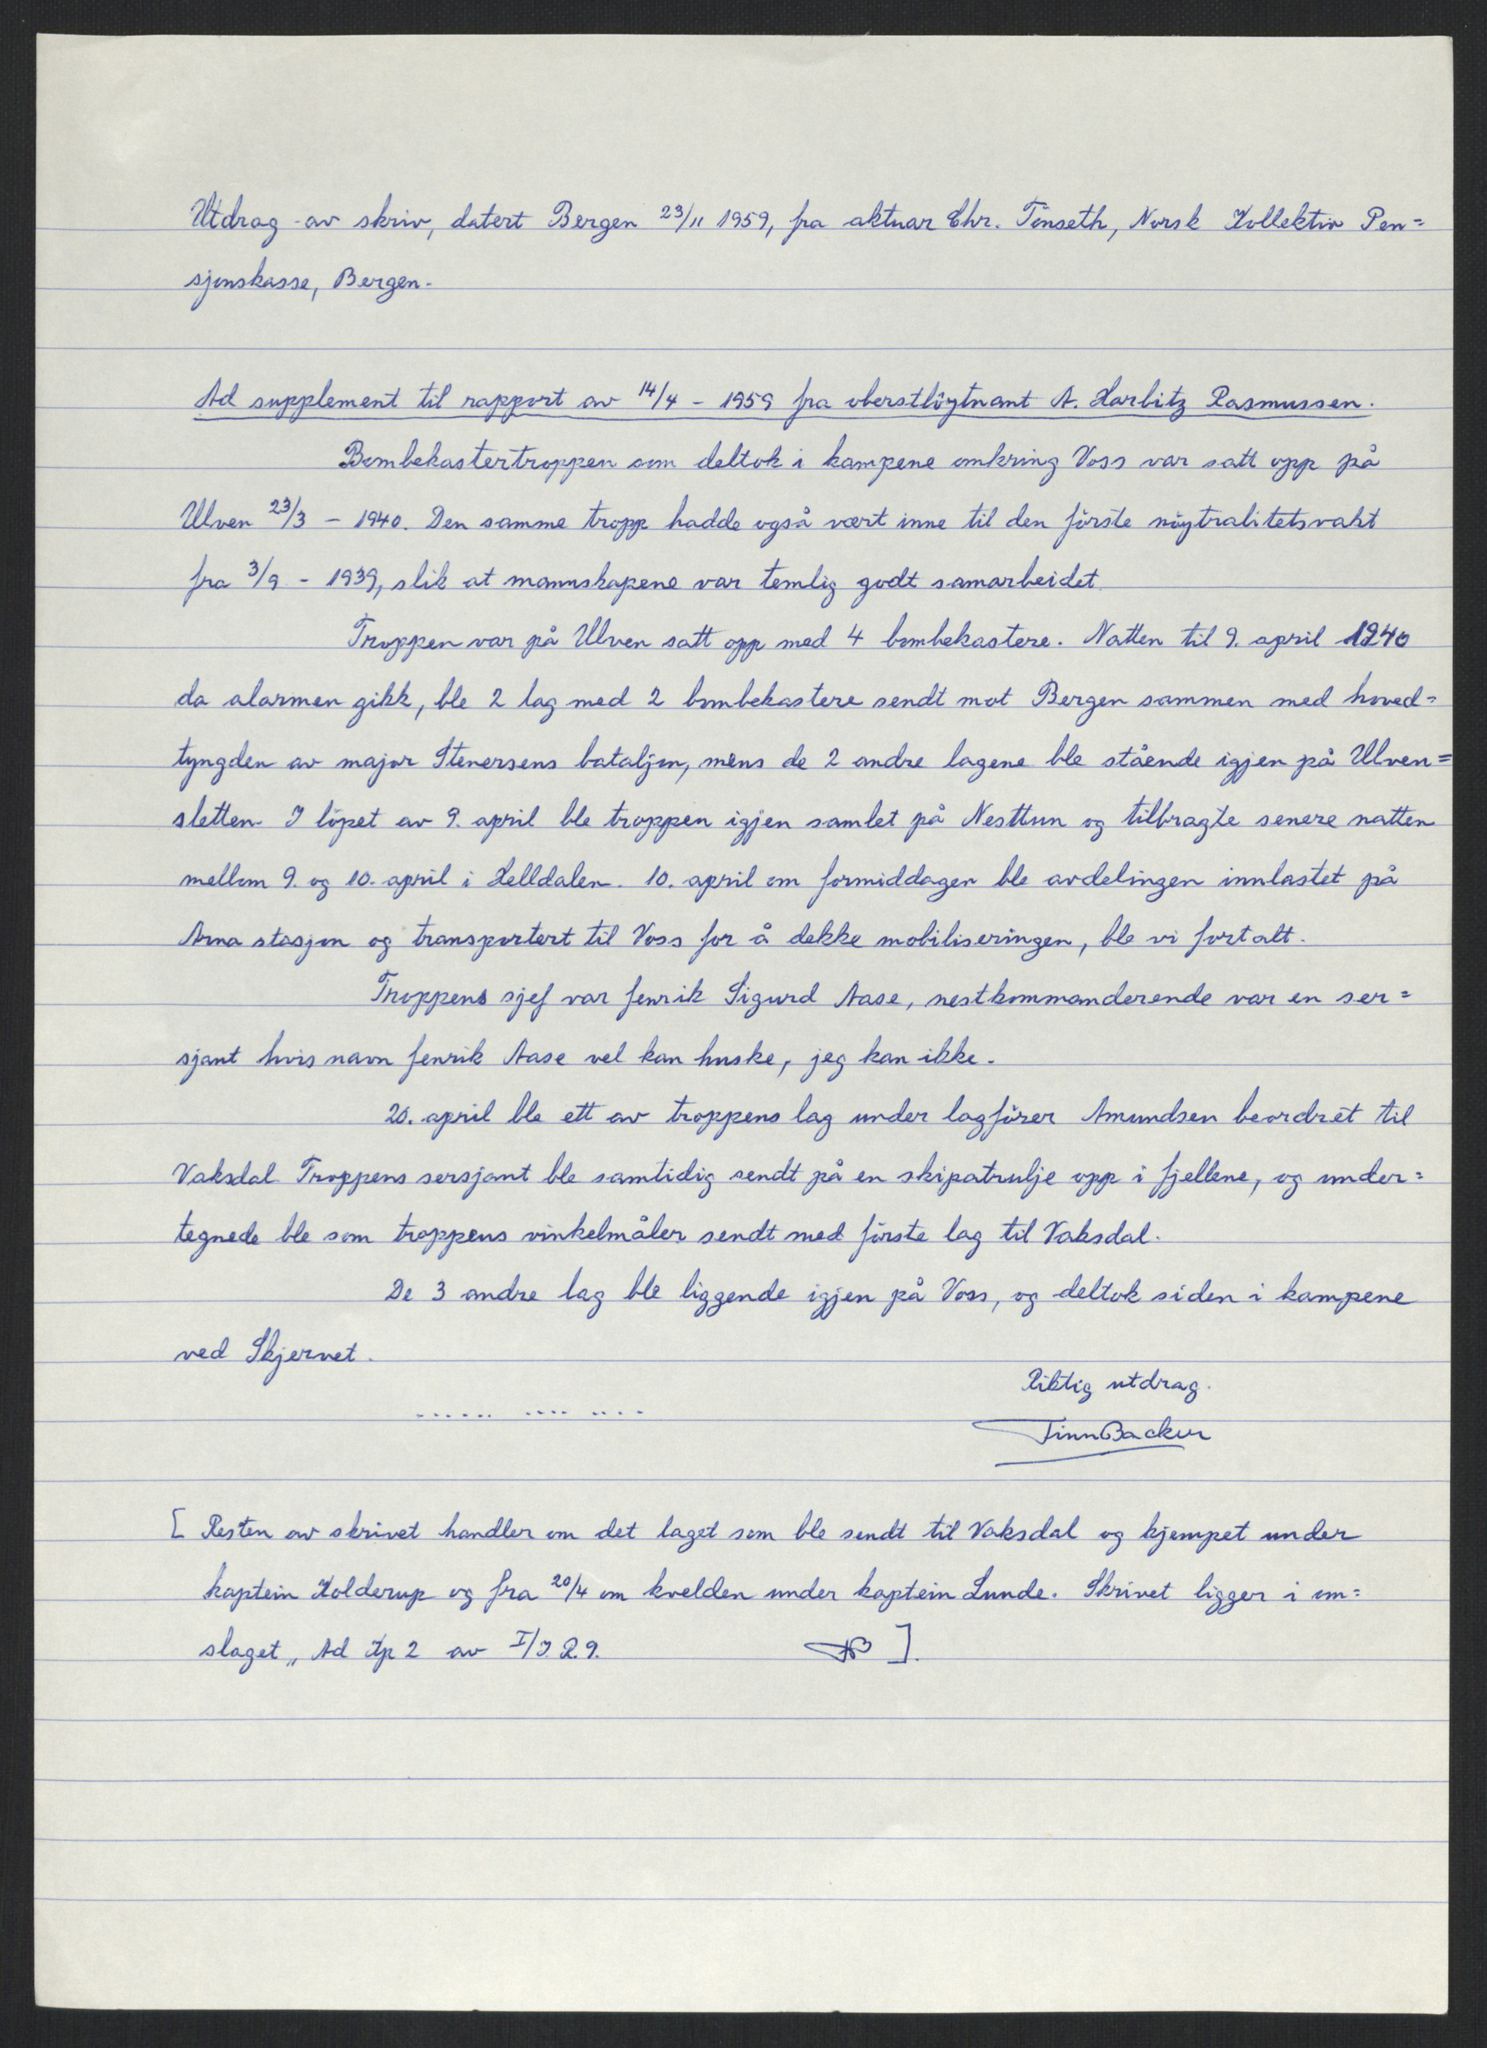 Utdrag av skriv, datert Bergen 23/11 1959, fra aktuar Chr. Tönseth, Norsk Kollektiv Pen=
sjonskasse, Bergen.
Ad supplement til rapport av 14/4 - 1959 fra oberstlöytnant A. Harbitz Rasmussen.
Bombekastertroppen som deltok i kampene omkring Voss var satt opp på
Ulven 23/3 - 1940. Den samme tropp hadde også vært inne til den förste nöytralitetsvakt
fra 3/9 - 1939, slik at mannskapene var temlig godt samarbeidet.
Troppen var på Ulven satt opp med 4 bombekastere. Natten til 9. april 1940
da alarmen gikk, ble 2 lag med 2 bombekastere sendt mot Bergen sammen med hoved=
tyngden av major Stenersens bataljon, mens de 2 andre lagene ble stående igjen på Ulven=
sletten. I löpet av 9. april ble troppen igjen samlet på Nesttun og tilbragte senere natten
mellom 9. og 10. april i Helldalen. 10. april om formiddagen ble avdelingen innlastet på
Arna stasjon og transportert til Voss for å dekke mobiliseringen, ble vi fortalt.
Troppens sjef var fenrik Sigurd Aase, nestkommanderende var en ser=
sjant hvis navn fenrik Aase vel kan huske, jeg kan ikke.
20. april ble ett av troppens lag under lagförer Amundsen beordret til
Vaksdal. Troppens sersjant ble samtidig sendt på en skipatrulje opp i fjellene, og under=
tegnede ble som troppens vinkelmåler sendt med förste lag til Vaksdal.
De 3 andre lag ble liggende igjen på Voss, og deltok siden i kampene
ved Skjervet.
Riktig utdrag.
...... .... ....
Finn Backer
[ Resten av skrivet handler om det laget som ble sendt til Vaksdal og kjempet under
kaptein Holderup og fra 20/4 om kvelden under kaptein Lunde. Skrivet ligger i om=
slaget „ Ad Kp 2 av I/I.R.9. FB ].